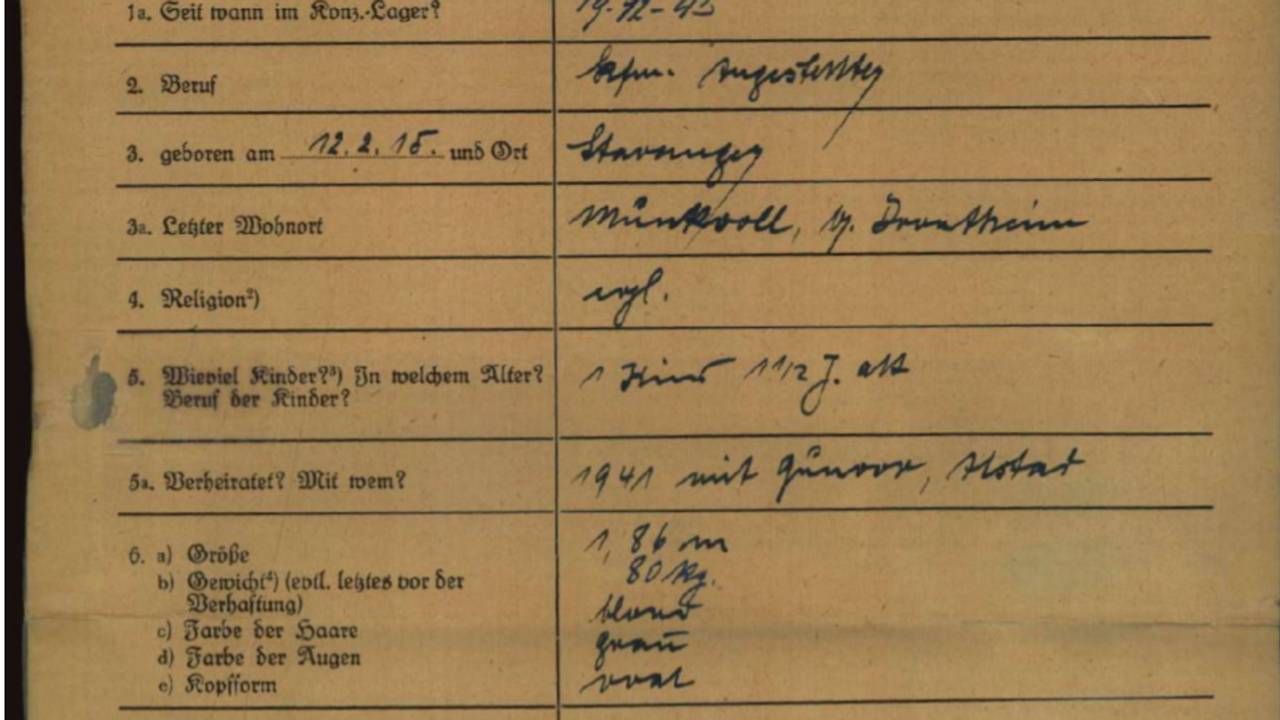 1a. Seit wann im Konz.-Lager?
2. Beruf kfm. Angestellter
3. geboren am 12.2.15. und Ort Stavanger
3a. Letzter Wohnort Munkvoll, b. Drontheim
4. Religion²) evgl.
5. Wieviel Kinder?³) In welchem Alter? 1 Kind 1 1/2 J. alt
Beruf der Kinder?
5a. Verheiratet? Mit wem? 1941 mit Gunvor, Alstad
6. a) Größe 1,86 m
b) Gewicht⁴) (evtl. letztes vor der 80 kg.
Verhaftung)
c) Farbe der Haare blond
d) Farbe der Augen grau
e) Kopfform oval